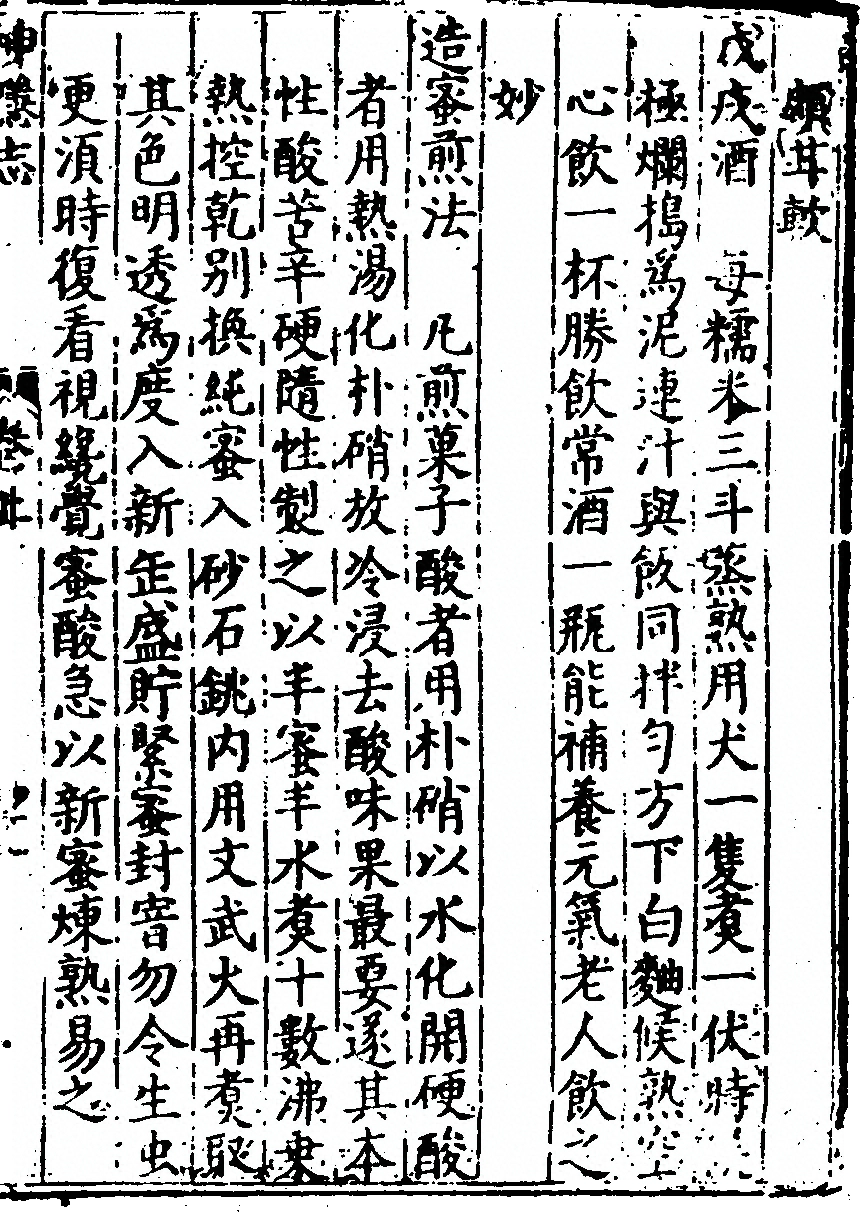 頻耳歃
戊戌酒　每糯米三斗蒸熟用犬一隻煑一伏時
極爛搗爲泥連汁與飯同拌勻方下白麯候熟空
心飲一杯勝飲常酒一瓶能補養元氣老人飲之
妙
造蜜煎法　凡煎菓子酸者用朴硝以水化開硬酸
者用熱湯化朴硝放冷浸去酸味果最要遂其本
性酸苦辛硬隨性製之以半蜜半水煑十數沸乗
熱控乾别換純蜜入砂石銚内用文武火再煑取
其色明透爲度入新缶盛貯緊密封窨勿令生虫
更湏時復看視纔覺蜜酸急以新蜜煉熟易之